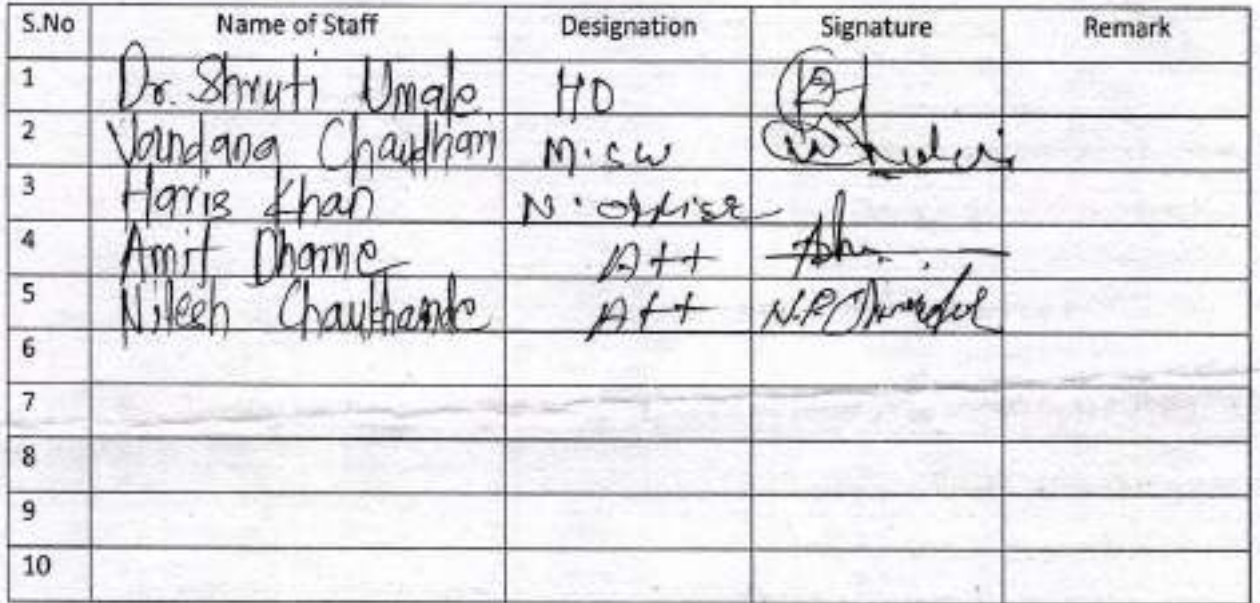 S.No Name of Staff Designation Signature Remark
1 Dr. Shruti Umale HO
2 Vandana Chaudhari M.SW
3 Haris Khan N. Officer
4 Amit Dhorne Att
5 Nilesh Chaukhande Att
6
7
8
9
10